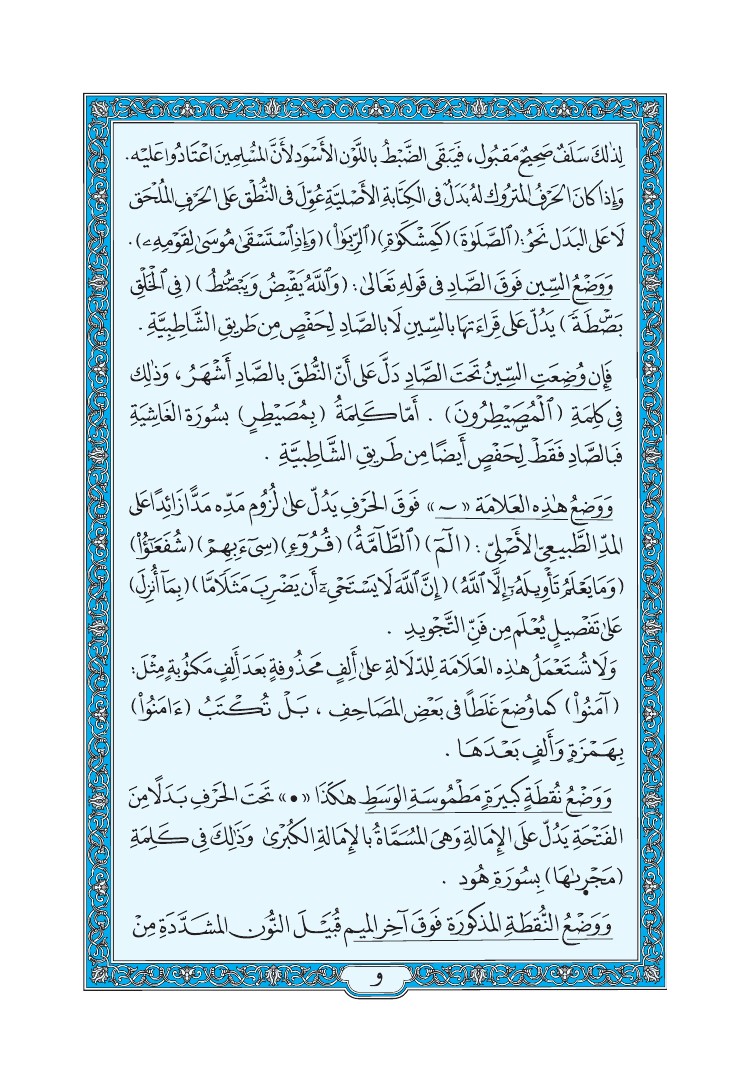 لِذَٰلِكَ سَلَفٌ صَحِيحٌ مَقْبُول، فَيَبْقَى الضَّبْطُ بِاللَّوْنِ الأَسْوَد لأَنَّ المُسْلِمِينَ اعْتَادُوا عَلَيْه.
وَإِذَا كَانَ الحَرْفُ المَتْرُوك لَهُ بَدَلٌ فى الكِتَابَةِ الأَصْلِيَّةِ عُوِّلَ فى النُّطْقِ عَلى الحَرْفِ المُلْحَق
لَا عَلى البَدَل نَحْوُ: (الصَّلَوٰةَ) (كَمِشْكَوٰةٍ) (الرِّبَوٰا۟) (وَإِذِ ٱسْتَسْقَىٰ مُوسَىٰ لِقَوْمِهِۦ).
وَوَضْعُ السِّين فَوْقَ الصَّادِ فى قَوْلِهِ تَعَالىٰ: (وَٱللَّهُ يَقْبِضُ وَيَبْصُۜطُ) (فِى ٱلْخَلْقِ
بَصْۜطَةً) يَدُلّ عَلى قِرَاءَتِهَا بِالسِّينِ لَا بِالصَّادِ لِحَفْصٍ مِن طَرِيقِ الشَّاطِبِيَّةِ .
فَإِن وُضِعَتِ السِّينُ تَحْتَ الصَّادِ دَلَّ عَلى أَنّ النُّطْقَ بِالصَّادِ أَشْهَرُ ، وَذَٰلِكَ
فى كلِمَةِ (ٱلْمُصَۣيْطِرُونَ) . أَمَّا كَلِمَةُ (بِمُصَيْطِرٍ) بِسُورَةِ الغَاشِيَةِ
فَبِالصَّادِ فَقَطْ لِحَفْصٍ أَيضًا مِن طَرِيقِ الشَّاطِبيَّةِ .
وَوَضعُ هٰذِهِ العَلامَة «ٓ» فَوقَ الحَرْفِ يَدُلّ عَلىٰ لُزُوم مَدِّه مَدًّا زَائِدًا عَلى
المَدِّ الطَّبِيعىّ الأَصْلِىّ: (الٓمٓ) (ٱلطَّآمَّةُ) (قُرُوٓءٍ) (سِىٓءَ بِهِمْ) (شُفَعَٰٓؤُا۟)
(وَمَا يَعْلَمُ تَأْوِيلَهُۥٓ إِلَّا ٱللَّهُ) (إِنَّ ٱللَّهَ لَا يَسْتَحْىِۦٓ أَن يَضْرِبَ مَثَلًا مَّا) (بِمَآ أُنزِلَ)
عَلىٰ تَفْصِيلٍ يُعْلَم مِن فَنِّ التَّجْوِيدِ .
وَلَا تُسْتَعْمَلُ هٰذِه العَلَامَة لِلدِّلَالَةِ عَلىٰ أَلِفٍ مَحذُوفةٍ بَعدَ أَلِفٍ مَكتُوبَةٍ مِثْلَ:
(آمَنُوا۟) كَما وُضِعَ غَلَطًا فى بَعْضِ المَصَاحِفِ ، بَلْ تُكْتَبُ (ءَامَنُوا۟)
بِهَمْزَةٍ وَأَلِفٍ بَعْدَهَا .
وَوَضْعُ نُقطَةٍ كَبِيرَةٍ مَطْمُوسَةِ الوَسَطِ هٰكَذَا «•» تَحْتَ الحَرْفِ بَدَلًا مِنَ
الفَتْحَةِ يَدُلُّ عَلى الإِمَالَةِ وَهىَ المُسَمَّاةُ بِالإِمَالَةِ الكُبْرىٰ وَذَٰلِكَ فِى كَلِمَةِ
(مَجْر۪ىٰهَا) بِسُورَةِ هُود .
وَوَضْعُ النُّقطَةِ المَذكورَةِ فَوْقَ آخِرِ المِيم قُبَيْلَ النُّون المشدَّدَةِ مِنْ
و